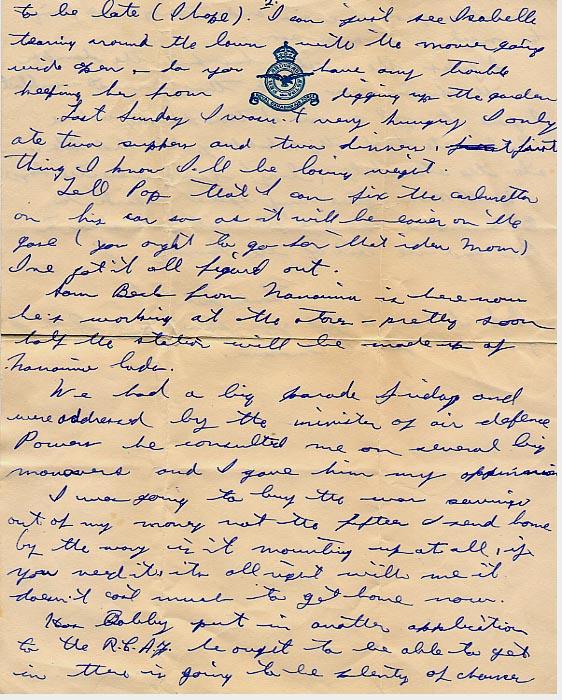 2.
to be late (I hope). I can just see Isabelle
tearing round the lawn with the mower going
wide open, do you have any trouble
keeping her from digging up the garden
Last Sunday I wasn't very hungry I only
ate two suppers and two dinners, first
thing I know I'll be losing weight.
Tell Pop that I can fix the carburetor
on his car so as it will be easier on the
gas (you ought to go for that idea Mom)
I've got it all figured out.
Sam Beck from Nanaimo is here now
he's working at the stores - pretty soon
half the station will be made up of
Nanaimo lads.
We had a big parade Friday and
were addressed by the minister of air defence
Powers he consulted me on several big
manouvers and I gave him my
I was going to buy the war savings
out of my money not the fifteen I send home
by the way is it mounting up at all, if
you need it its all right with me it
doesn't cost much to get home now.
Has Bobby put in another application
to the R.C.A.F. he ought to be able to get
in there is going to be plenty of chances